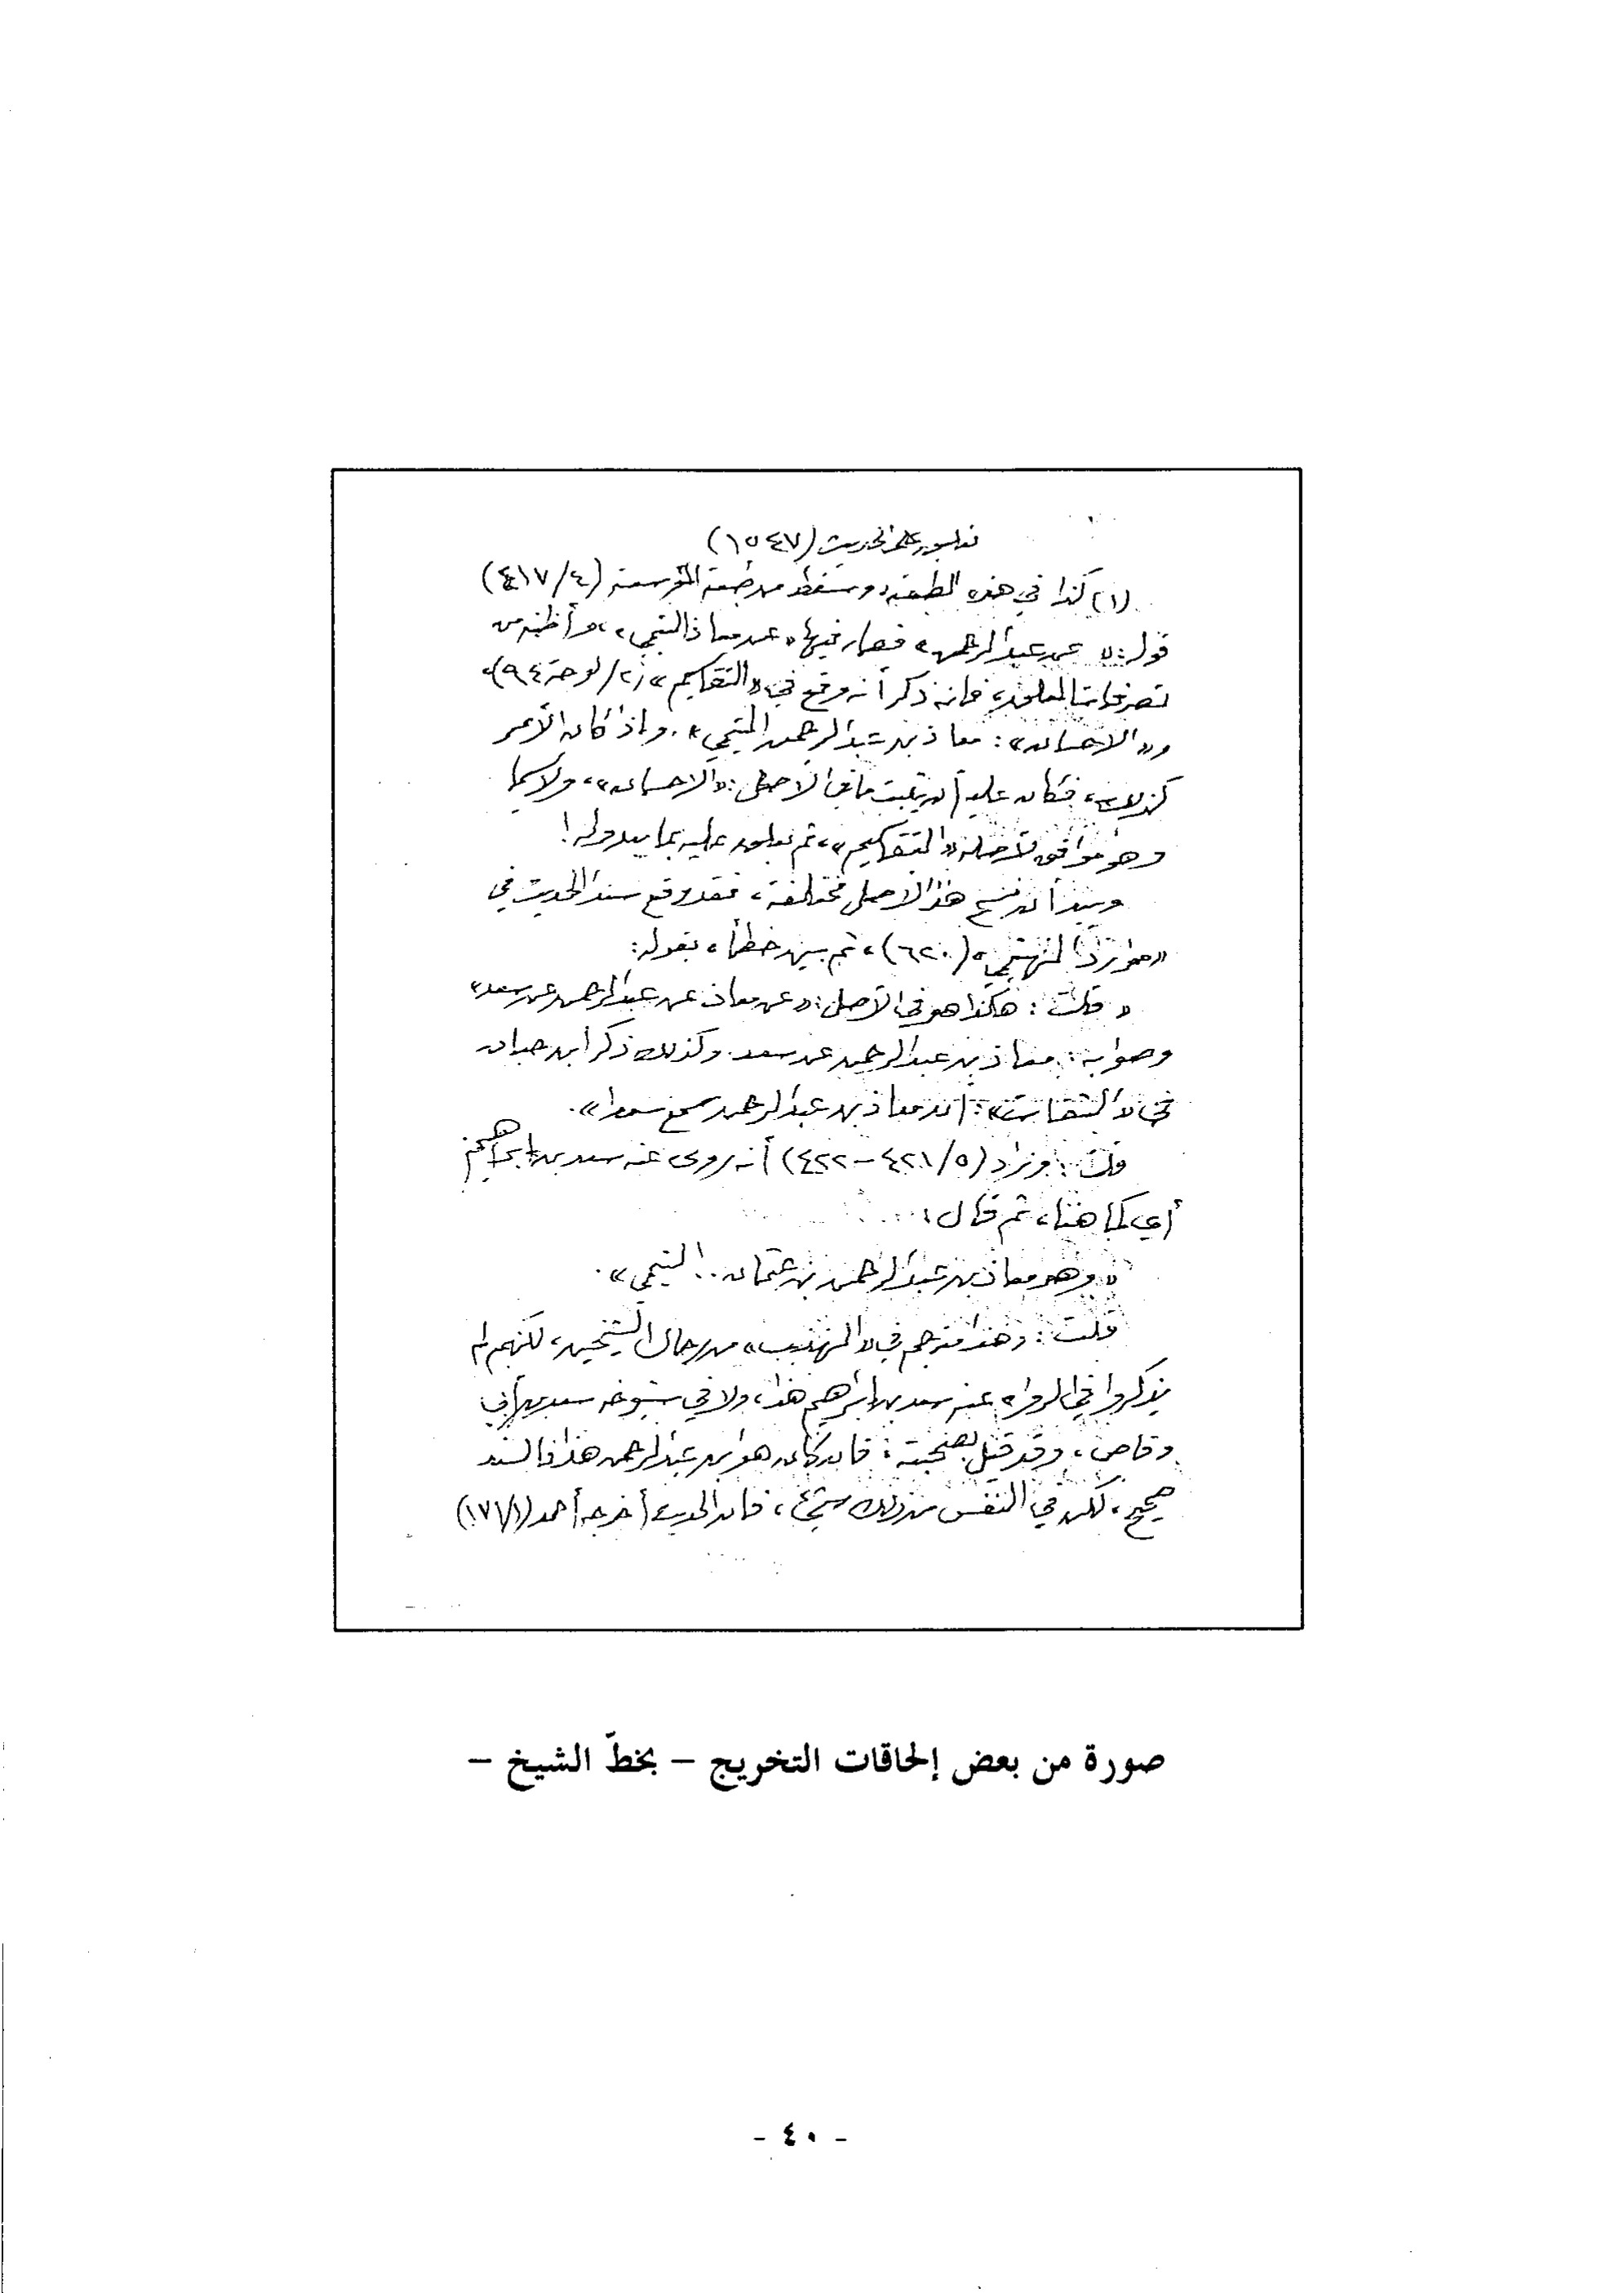 تعليق على الحديث (١٥٤٧)
(١) كذا في هذه الطبعة، وسقط من طبعة المؤسسة (٤/٤١٧)
قوله: «عن عبد الرحمن» فصار فيها «عن معاذ التيمي»، وأظنه من
تصرفات المعلق، فإنه ذكر أنه وقع في «التقاسيم» (٢/لوحة ٩٤)،
و«الإحسان»: معاذ بن عبد الرحمن التيمي». وإذا كان الأمر
كذلك، فكان عليه أن يثبت ما في الأصل: «الإحسان»، ولا سيما
وهو موافق لأصله «التقاسيم»، ثم يعلق عليه بما يبدو له!
ويبدو أن نسخ هذا الأصل مختلفة، فقد وقع سند الحديث في
«موارد الهيثمي» (٦٢٠)، ثم بين خطأه بقوله:
«قلت: هكذا هو في الأصل: «عن معاذ عن عبد الرحمن عن سعد»
وصوابه: معاذ بن عبد الرحمن عن سعد. وكذلك ذكر ابن حبان
في «الثقات»: أن معاذ بن عبد الرحمن سمع سعدا».
قلت: وزاد (٥/٤٢١-٤٢٢) أنه روى عنه سعد بن إبراهيم
أي كما هنا، ثم قال:
«وهو معاذ بن عبد الرحمن بن عثمان.. التيمي».
قلت: وهذا مترجم في «التهذيب» من رجال الشيخين، لكنهم لم
يذكروا في الرواة عنه سعد بن إبراهيم هذا، ولا في شيوخه سعد بن أبي
وقاص، وقد قيل بصحبته؛ فإن كان هو ابن عبد الرحمن هذا فالسند
صحيح، لكن في النفس من ذلك شيء، فإن الحديث أخرجه أحمد (١/١٧١)
صورة من بعض إلحاقات التخريج – بخطّ الشيخ –
- ٤٠ -